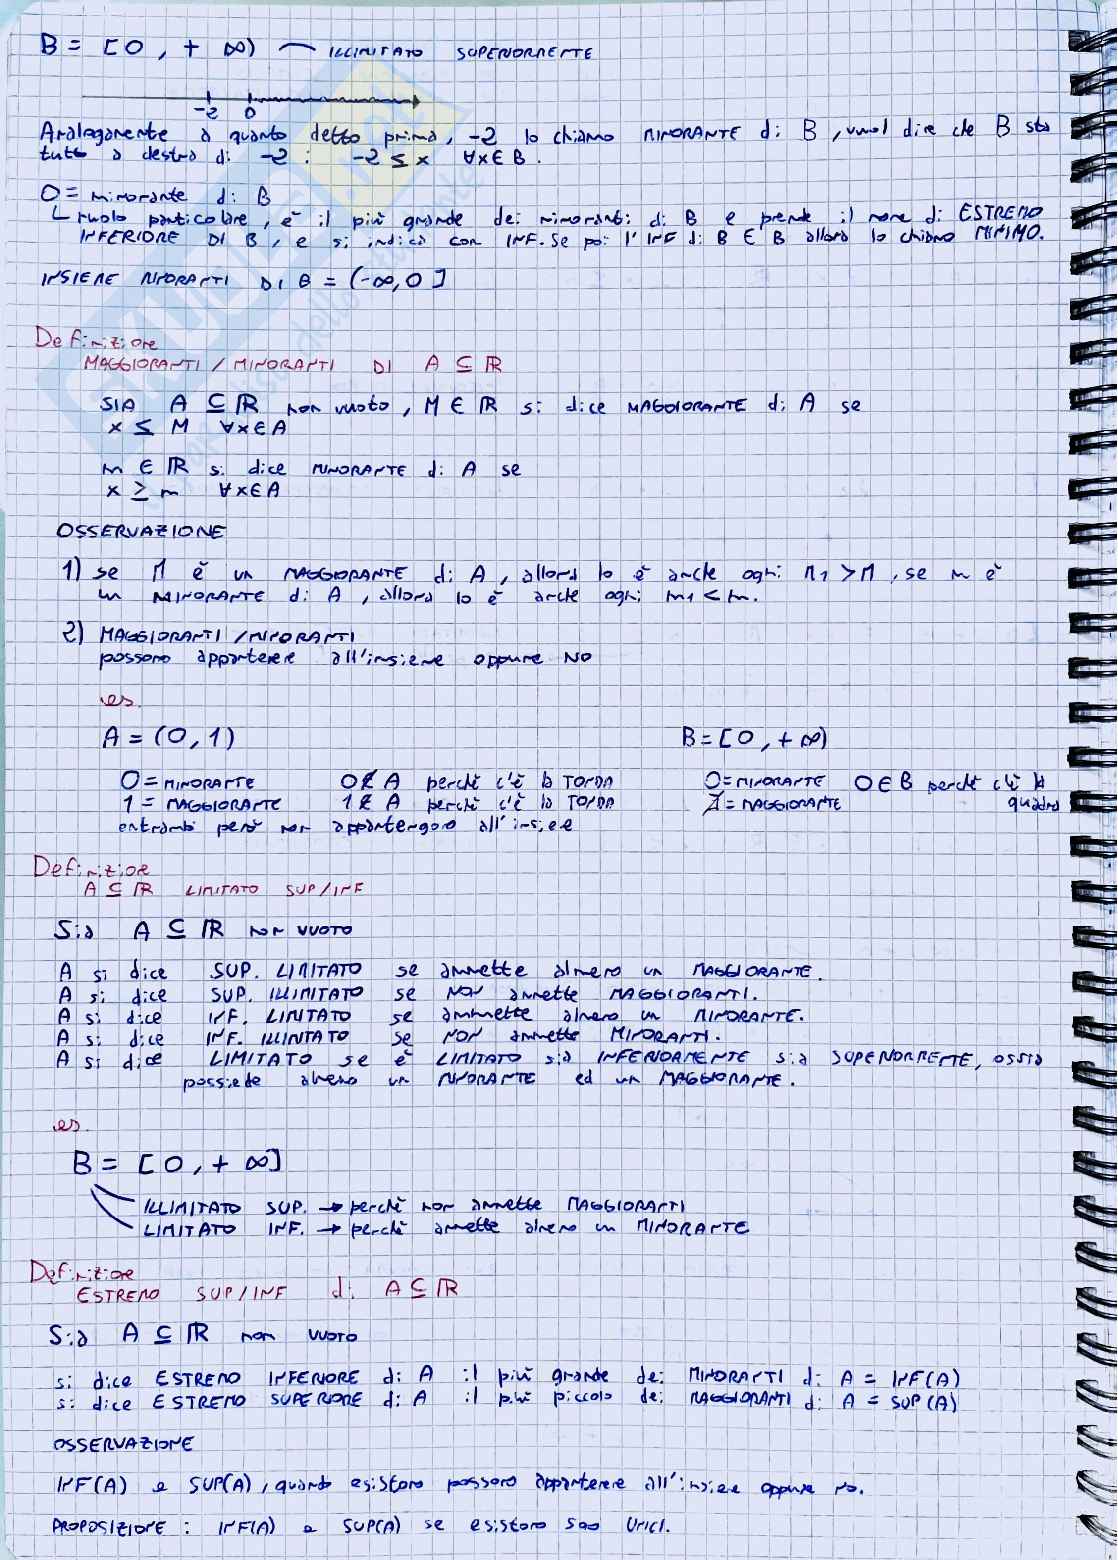 B = [0, + ∞) — ILLIMITATO SUPERIORMENTE
-2 0
Analogamente a quanto detto prima, -2 lo chiamo MINORANTE di B, vuol dire che B sta
tutto a destra di -2 : -2 ≤ x ∀x∈B.
0 = minorante di B
ruolo particolare, è il più grande dei minoranti di B e prende il nome di ESTREMO
INFERIORE DI B, e si indica con INF. Se poi l'INF di B ∈ B allora lo chiamo MINIMO.
INSIEME MINORANTI DI B = (-∞, 0]
Definizione
MAGGIORANTI / MINORANTI DI A ⊆ ℝ
SIA A ⊆ ℝ non vuoto, M ∈ ℝ si dice MAGGIORANTE di A se
x ≤ M ∀x∈A
m ∈ ℝ si dice MINORANTE di A se
x ≥ m ∀x∈A
OSSERVAZIONE
1) se M è un MAGGIORANTE di A, allora lo è anche ogni M1 > M, se m è
un MINORANTE di A, allora lo è anche ogni m1 < m.
2) MAGGIORANTI / MINORANTI
possono appartenere all'insieme oppure NO
es.
A = (0, 1) B = [0, + ∞)
0 = MINORANTE 0 ∉ A perché c'è la TONDA 0 = MINORANTE 0 ∈ B perché c'è la
1 = MAGGIORANTE 1 ∉ A perché c'è la TONDA ∄ = MAGGIORANTE quadra
entrambi però non appartengono all'insieme
Definizione
A ⊆ ℝ LIMITATO SUP/INF
Sia A ⊆ ℝ NON VUOTO
A si dice SUP. LIMITATO se ammette almeno un MAGGIORANTE.
A si dice SUP. ILLIMITATO se NON ammette MAGGIORANTI.
A si dice INF. LIMITATO se ammette almeno un MINORANTE.
A si dice INF. ILLIMITATO se NON ammette MINORANTI.
A si dice LIMITATO se è LIMITATO sia INFERIORMENTE sia SUPERIORMENTE, ossia
possiede almeno un MINORANTE ed un MAGGIORANTE.
es.
B = [0, + ∞]
ILLIMITATO SUP. → perché non ammette MAGGIORANTI
LIMITATO INF. → perché ammette almeno un MINORANTE
Definizione
ESTREMO SUP/INF di A ⊆ ℝ
Sia A ⊆ ℝ non vuoto
si dice ESTREMO INFERIORE di A il più grande dei MINORANTI di A = INF(A)
si dice ESTREMO SUPERIORE di A il più piccolo dei MAGGIORANTI di A = SUP(A)
OSSERVAZIONE
INF(A) e SUP(A), quando esistono possono appartenere all'insieme oppure no.
PROPOSIZIONE : INF(A) e SUP(A) se esistono sono UNICI.